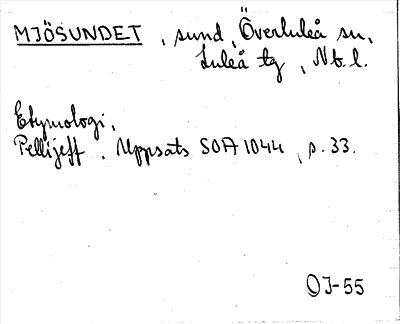 MJÖSUNDET, sund, Överluleå sn,
Luleå tg, Nb. l.
Etymologi,
Pellijeff. Uppsats SOFA 1044, s. 33.
OJ-55